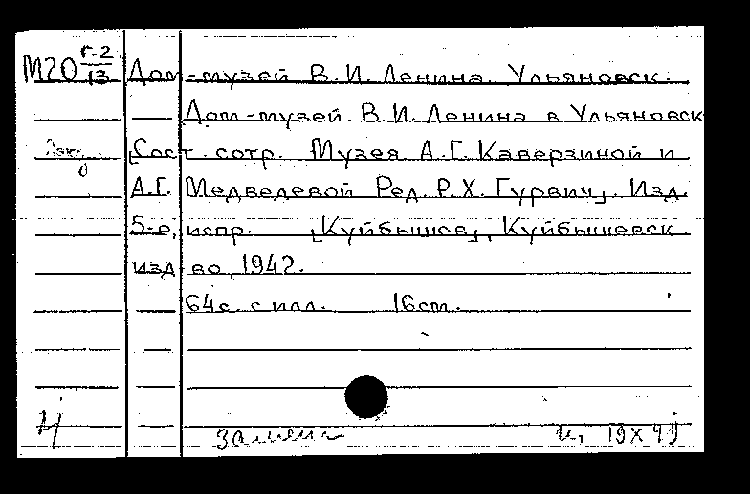 М20 Г-2/13 Дом-музей В.И. Ленина. Ульяновск.
Дом-музей В.И. Ленина в Ульяновск
[Сост. сотр. Музея А.Г. Каверзиной и
А.Г. Медведевой Ред. Р.Х. Гурвич]. Изд.
5-е, испр. [Куйбышев], Куйбышевск
изд во, 1942.
64с. с илл. 16см.